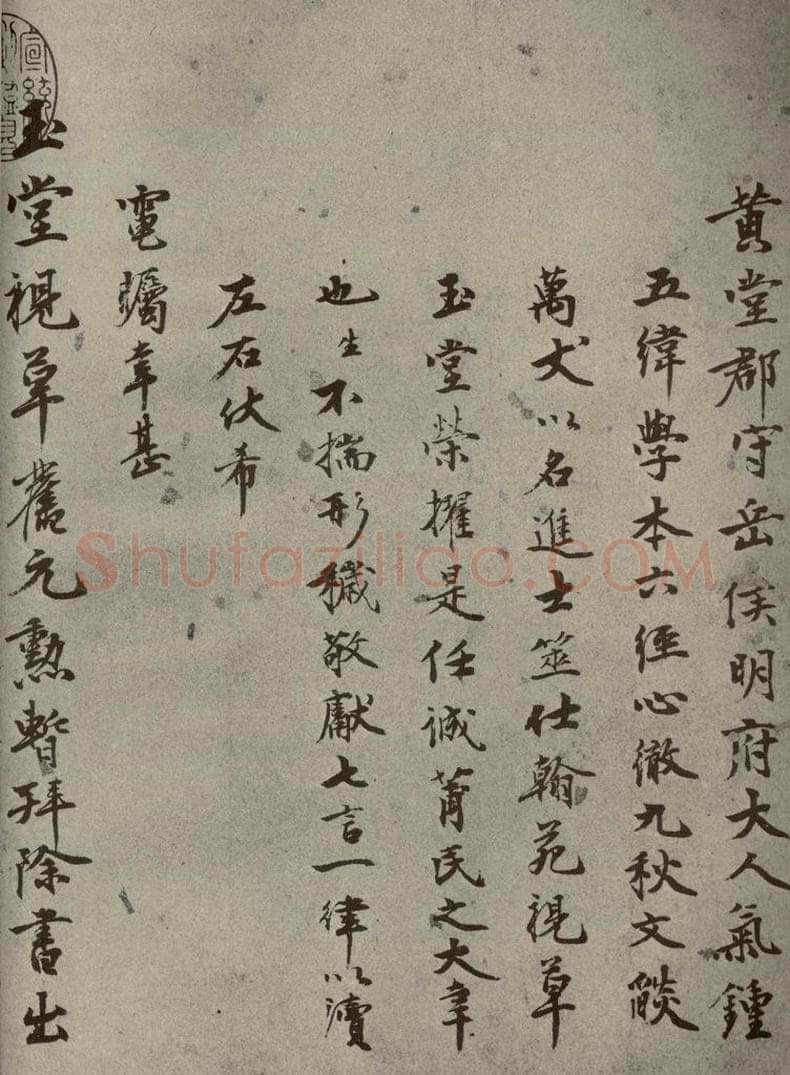 黄堂郡守岳侯明府大人氣鍾
五緯學本六經心徹九秋文燄
萬丈以名進士筮仕翰苑視草
玉堂榮擢是任誠莆民之大幸
也生不揣形穢敬獻七言一律以瀆
左右伏希
電矚幸甚
玉堂視草舊元勲暫拜除書出
宣統
Shufaziliao.COM